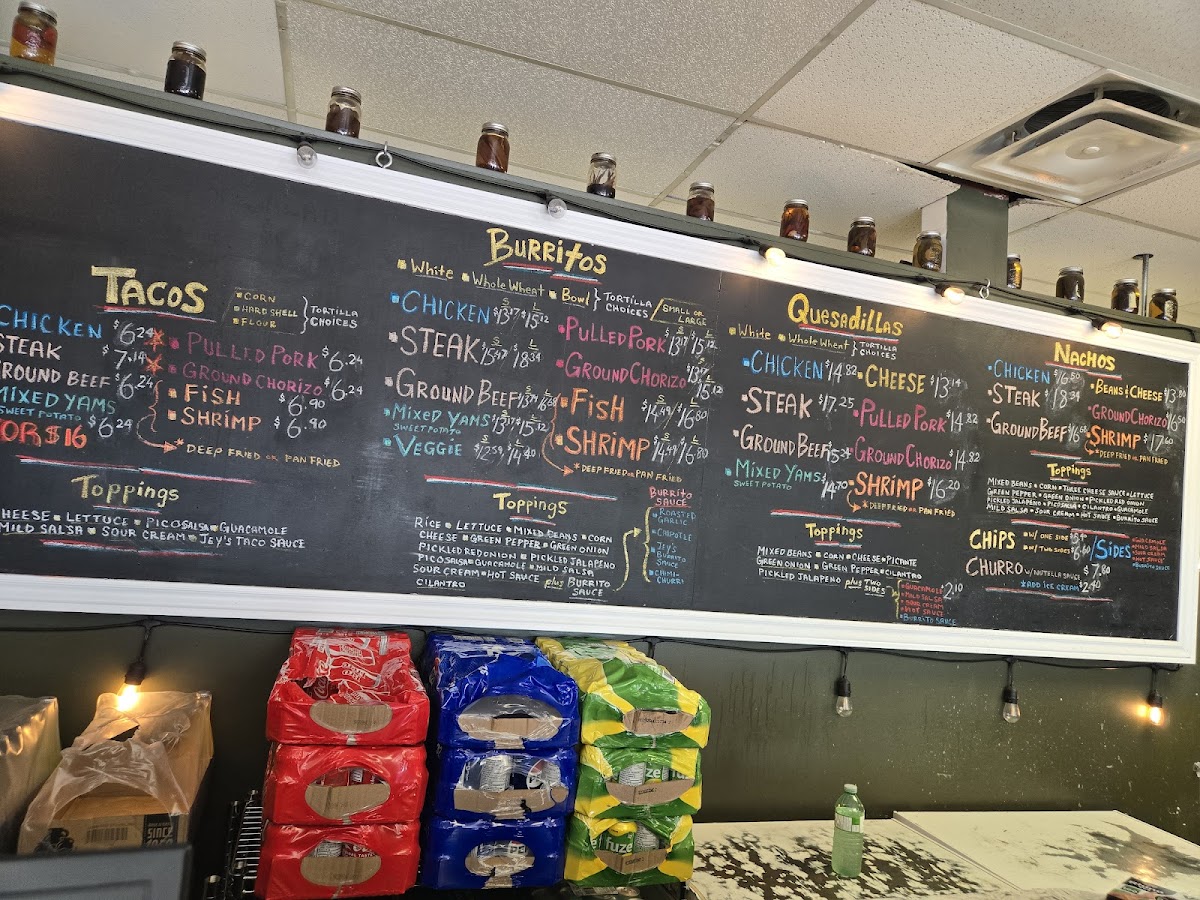 TACOS
CORN
HARD SHELL
FLOUR
TORTILLA
CHOICES
CHICKEN $6.24
STEAK $7.14
ROUND BEEF $6.24
MIXED YAMS
SWEET POTATO $6.24
OR $16
PULLED PORK $6.24
GROUND CHORIZO $6.24
FISH $6.90
SHRIMP $6.90
* DEEP FRIED OR PAN FRIED
Toppings
HEESE LETTUCE PICO SALSA GUACAMOLE
MILD SALSA SOUR CREAM JEY'S TACO SAUCE
BURRITOS
White Whole Wheat Bowl
TORTILLA
CHOICES
SMALL OR
LARGE
CHICKEN $13.17 $15.12
STEAK $15.47 $18.34
GROUND BEEF
MIXED YAMS $13.17 $15.12
SWEET POTATO
VEGGIE $12.59 $14.40
PULLED PORK $13.17 $15.12
GROUND CHORIZO $13.17 $15.12
FISH $14.49 $16.80
SHRIMP $14.49 $16.80
* DEEP FRIED OR PAN FRIED
Toppings
RICE LETTUCE MIXED BEANS CORN
CHEESE GREEN PEPPER GREEN ONION
PICKLED RED ONION PICKLED JALAPENO
PICO SALSA GUACAMOLE MILD SALSA
SOUR CREAM HOT SAUCE plus BURRITO
CILANTRO SAUCE
BURRITO
SAUCE
ROASTED
GARLIC
CHIPOTLE
JEY'S
BURRITO
SAUCE
CHIMI-
CHURRI
Quesadillas
White Whole Wheat
TORTILLA
CHOICES
CHICKEN $14.82
STEAK $17.25
GROUND BEEF
MIXED YAMS $14.70
SWEET POTATO
CHEESE $13.14
PULLED PORK $14.82
GROUND CHORIZO $14.82
SHRIMP $16.20
* DEEP FRIED OR PAN FRIED
Toppings
MIXED BEANS CORN CHEESE PICANTE
GREEN ONION GREEN PEPPER CILANTRO
PICKLED JALAPENO plus TWO
SIDES
GUACAMOLE
MILD SALSA
SOUR CREAM
HOT SAUCE
BURRITO SAUCE
$2.10
NACHOS
CHICKEN $16.50
STEAK $18.34
GROUND BEEF
BEANS & CHEESE $13.80
GROUND CHORIZO $16.50
SHRIMP $17.60
* DEEP FRIED OR PAN FRIED
Toppings
MIXED BEANS CORN THREE CHEESE SAUCE LETTUCE
GREEN PEPPER GREEN ONION PICKLED RED ONION
PICKLED JALAPENO PICO SALSA CILANTRO GUACAMOLE
MILD SALSA SOUR CREAM HOT SAUCE BURRITO SAUCE
CHIPS W/ ONE SIDE
W/ TWO SIDES $6.60
/SIDES
GUACAMOLE
MILD SALSA
SOUR CREAM
HOT SAUCE
BURRITO SAUCE
CHURRO W/ NUTELLA SAUCE $7.80
* ADD ICE CREAM $2.40
fuze
fuze
SINCE